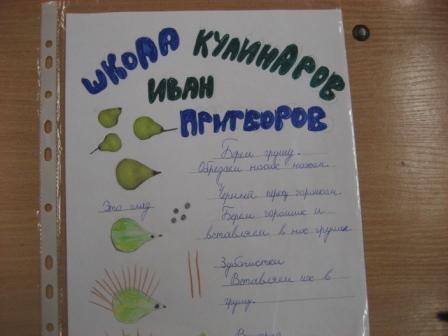 ШКОЛА КУЛИНАРОВ
ИВАН
ПРИТВОРОВ
Берем грушу.
Обрезаем носик ножом.
Черный перец горошком.
Это глаз
Берем горошик и
вставляем в нос груши
Зубочистки
Вставляем их в
грушу.